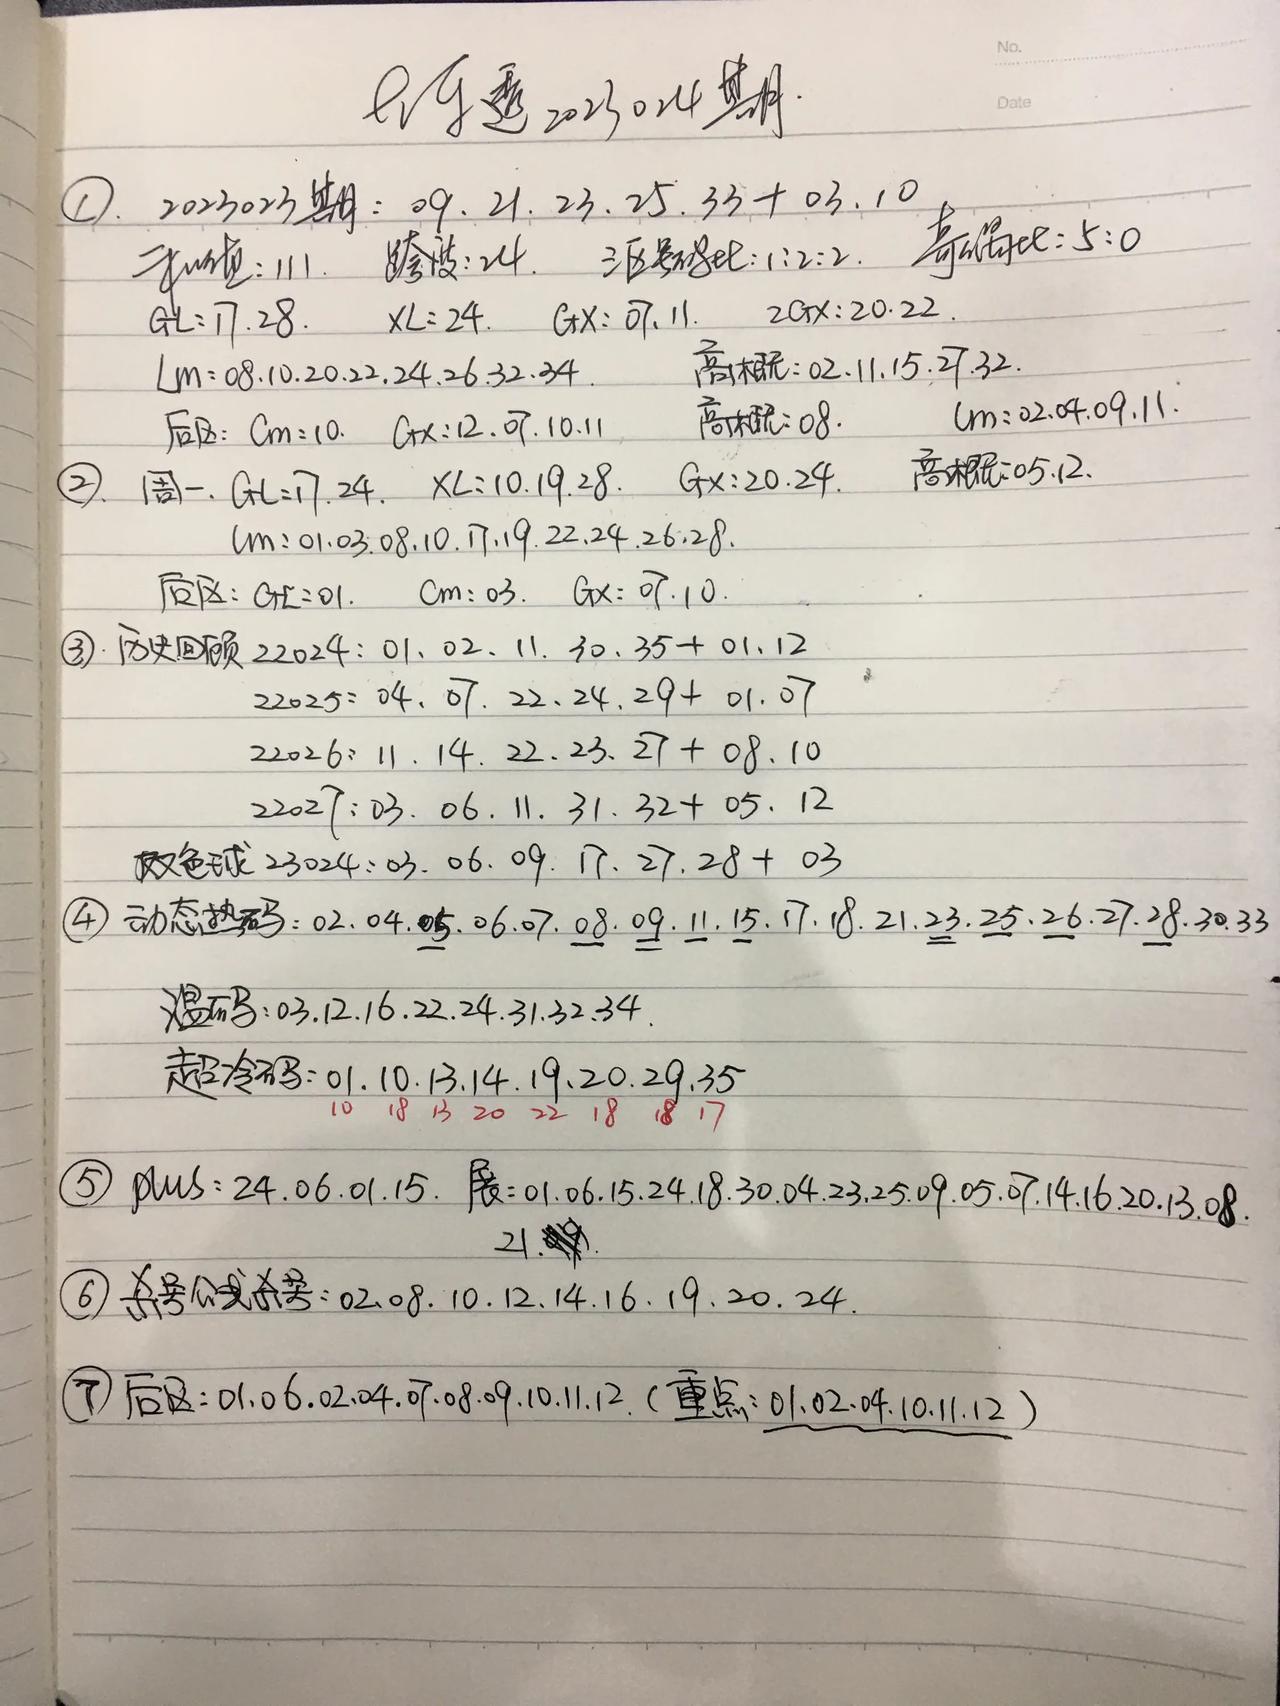 No.
Date
大乐透2023024期.
①. 2023023期: 09.21.23.25.33+03.10
和值:111. 跨度:24. 三区号码比:1:2:2. 奇偶比:5:0
GL:17.28. XL:24. GX:07.11. 2GX:20.22.
Lm:08.10.20.22.24.26.32.34. 高概:02.11.15.27.32.
后区: Cm:10. GX:12.07.10.11 高概:08. Lm:02.04.09.11.
② 周一. GL:17.24. XL:10.19.28. GX:20.24. 高概:05.12.
Lm:01.03.08.10.17.19.22.24.26.28.
后区: GL:01. Cm:03. GX:07.10.
③. 历史回顾 22024: 01.02.11.30.35+01.12
22025: 04.07.22.24.29+01.07
22026: 11.14.22.23.27+08.10
22027: 03.06.11.31.32+05.12
双色球 23024: 03.06.09.17.27.28+03
④ 动态热码: 02.04.05.06.07.08.09.11.15.17.18.21.23.25.26.27.28.30.33
温码:03.12.16.22.24.31.32.34.
超冷码:01.10.13.14.19.20.29.35
10 18 13 20 22 18 18 17
⑤ plus: 24.06.01.15. 展:01.06.15.24.18.30.04.23.25.09.05.07.14.16.20.13.08.
21.
⑥ 杀号公式杀号:02.08.10.12.14.16.19.20.24.
⑦ 后区:01.06.02.04.07.08.09.10.11.12.(重点:01.02.04.10.11.12)